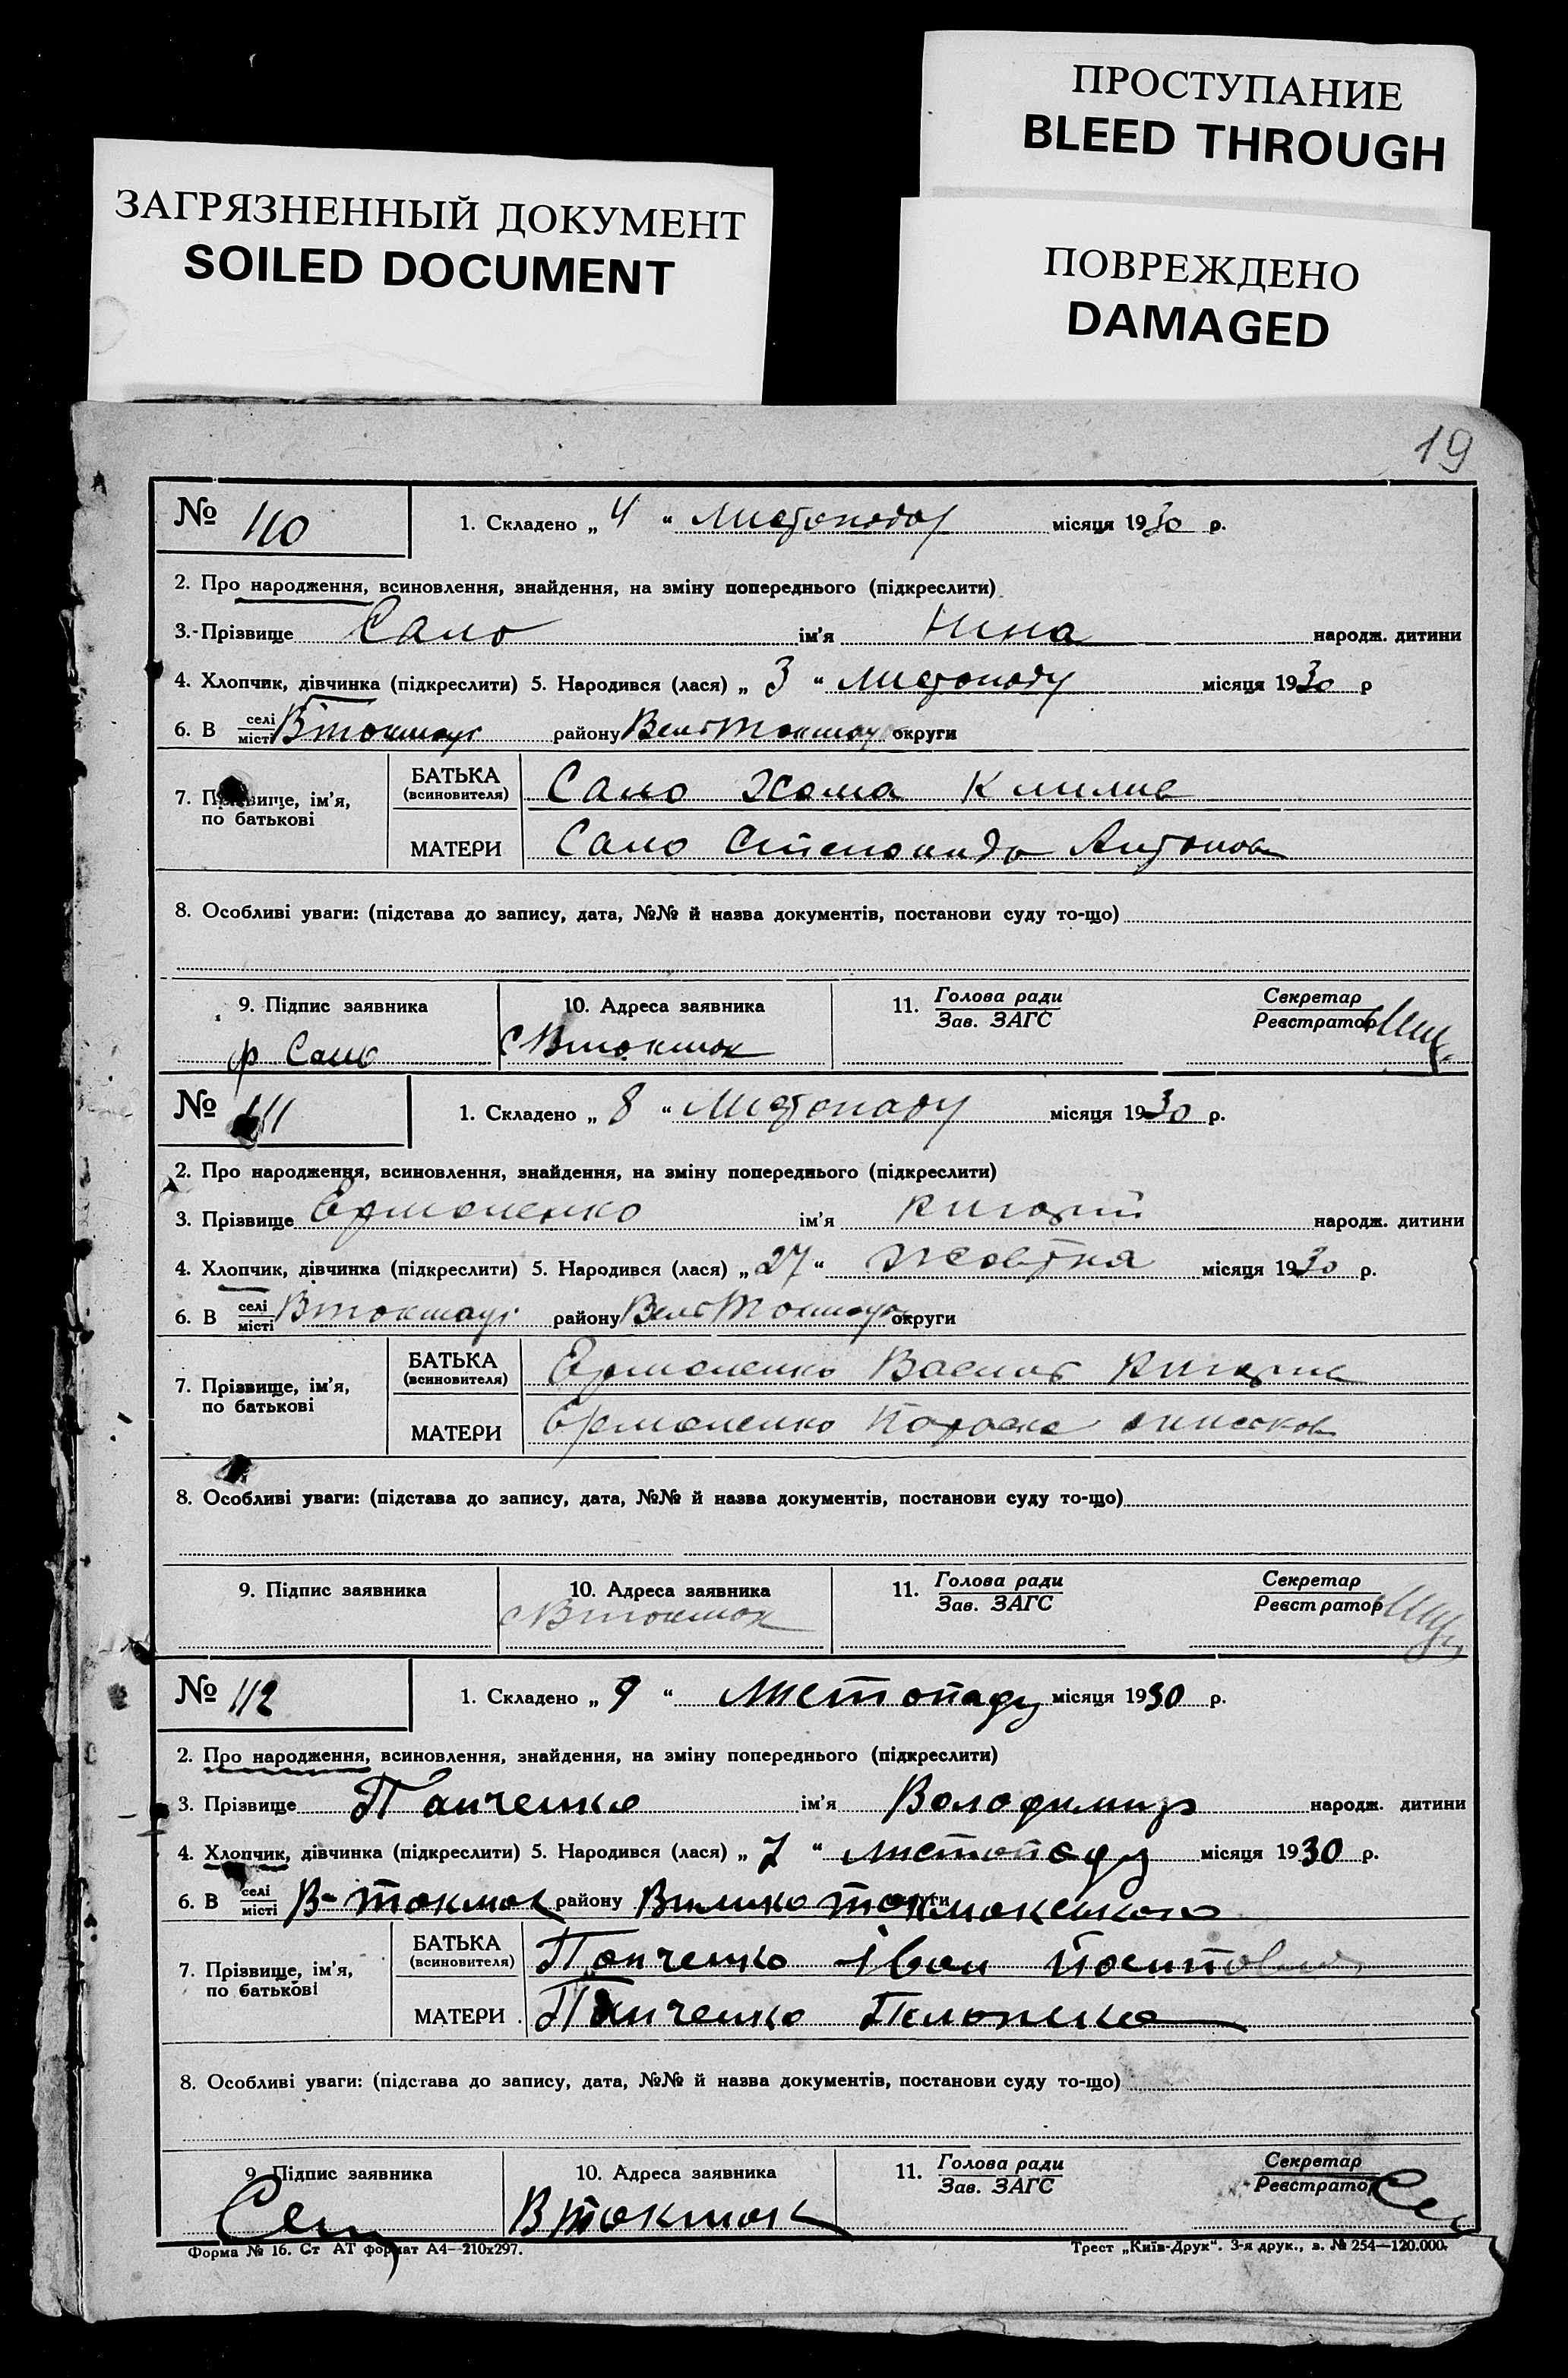 ПРОСТУПАНИЕ
BLEED THROUGH
ЗАГРЯЗНЕННЫЙ ДОКУМЕНТ
SOILED DOCUMENT
ПОВРЕЖДЕНО
DAMAGED
19
№ 110
1. Складено „ 4 “ Листопада місяця 1930 р.
2. Про народження, всиновлення, знайдення, на зміну попереднього (підкреслити)
3. Прізвище Сало ім'я Нина народж. дитини
4. Хлопчик, дівчинка (підкреслити) 5. Народився (лася) „ 3 “ Листопаду місяця 1930 р
6. В селі місті Втокмаці району округи
7. Прізвище, ім'я, по батькові
БАТЬКА (всиновителя) Сало Хома
МАТЕРИ Сало Степанида Антонов
8. Особливі уваги: (підстава до запису, дата, №№ й назва документів, постанови суду то-що)
9. Підпис заявника 10. Адреса заявника 11. Голова ради Зав. ЗАГС Секретар Реєстратор
Сало с Втокмак
№ 111
1. Складено „ 8 “ Листопаду місяця 1930 р.
2. Про народження, всиновлення, знайдення, на зміну попереднього (підкреслити)
3. Прізвище Ермоленко ім'я народж. дитини
4. Хлопчик, дівчинка (підкреслити) 5. Народився (лася) „ 27 “ Жовтня місяця 1930 р.
6. В селі місті Втокмаці району округи
7. Прізвище, ім'я, по батькові
БАТЬКА (всиновителя) Ермоленко
МАТЕРИ Ермоленко
8. Особливі уваги: (підстава до запису, дата, №№ й назва документів, постанови суду то-що)
9. Підпис заявника 10. Адреса заявника 11. Голова ради Зав. ЗАГС Секретар Реєстратор
с Втокмак
№ 112
1. Складено „ 9 “ Листопаду місяця 1930 р.
2. Про народження, всиновлення, знайдення, на зміну попереднього (підкреслити)
3. Прізвище Панченко ім'я Володимир народж. дитини
4. Хлопчик, дівчинка (підкреслити) 5. Народився (лася) „ 7 “ Листопаду місяця 1930 р.
6. В селі місті В-Токмак району округи
7. Прізвище, ім'я, по батькові
БАТЬКА (всиновителя) Панченко Іван
МАТЕРИ Панченко
8. Особливі уваги: (підстава до запису, дата, №№ й назва документів, постанови суду то-що)
9. Підпис заявника 10. Адреса заявника 11. Голова ради Зав. ЗАГС Секретар Реєстратор
В Токмак
Форма № 16. Ст АТ формат А4—210х297. Трест „Київ-Друк“. 3-я друк., з. № 254—120.000.